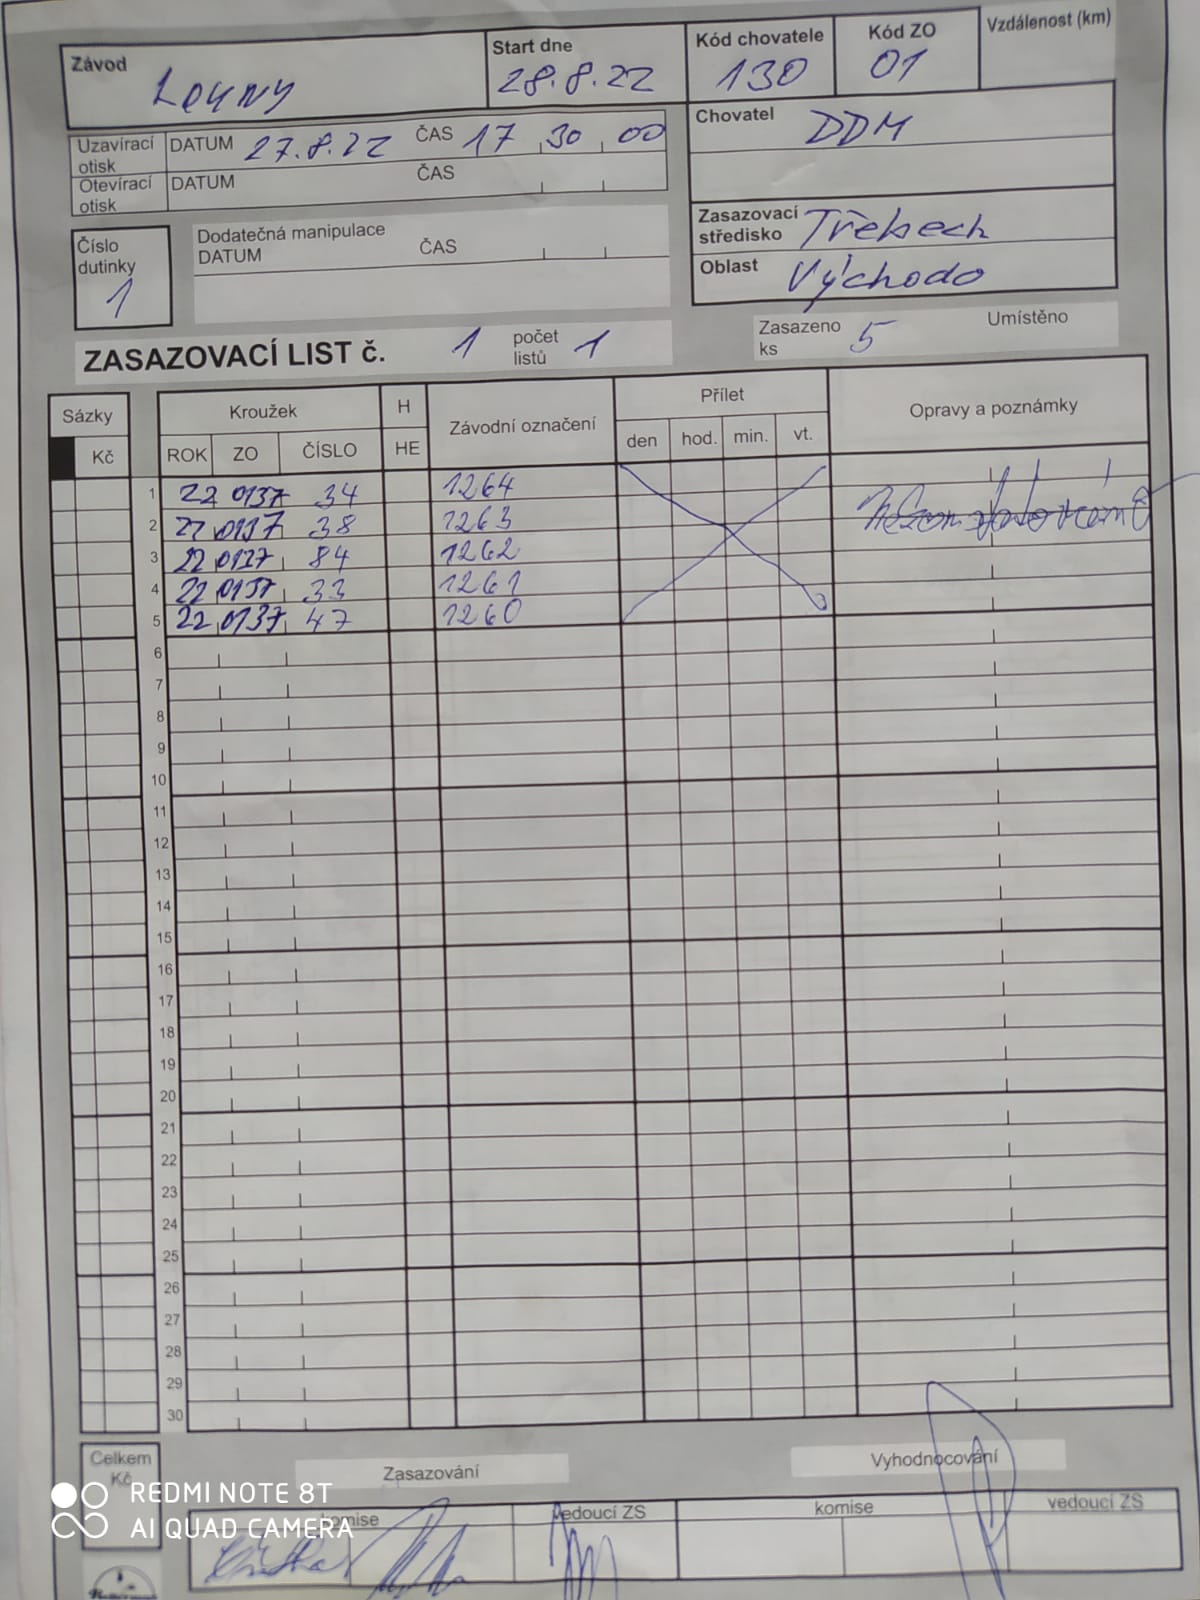 Závod Louny
Start dne 28.8.22
Kód chovatele 130
Kód ZO 01
Vzdálenost (km)
Uzavírací otisk DATUM 27.8.22 ČAS 17 30 00
Otevírací otisk DATUM ČAS
Chovatel DDM
Číslo dutinky 1
Dodatečná manipulace
DATUM ČAS
Zasazovací středisko Třebech
Oblast Východo
ZASAZOVACÍ LIST č. 1 počet listů 1
Zasazeno ks 5 Umístěno
Sázky Kroužek H Závodní označení Přílet Opravy a poznámky
Kč ROK ZO ČÍSLO HE den hod. min. vt.
1 22 0137 34 1264
2 22 0137 38 1263
3 22 0137 84 1262
4 22 0137 33 1261
5 22 0137 47 1260
6
7
8
9
10
11
12
13
14
15
16
17
18
19
20
21
22
23
24
25
26
27
28
29
30
Celkem Kč Zasazování Vyhodnocování
komise vedoucí ZS komise vedoucí ZS
REDMI NOTE 8T
AI QUAD CAMERA